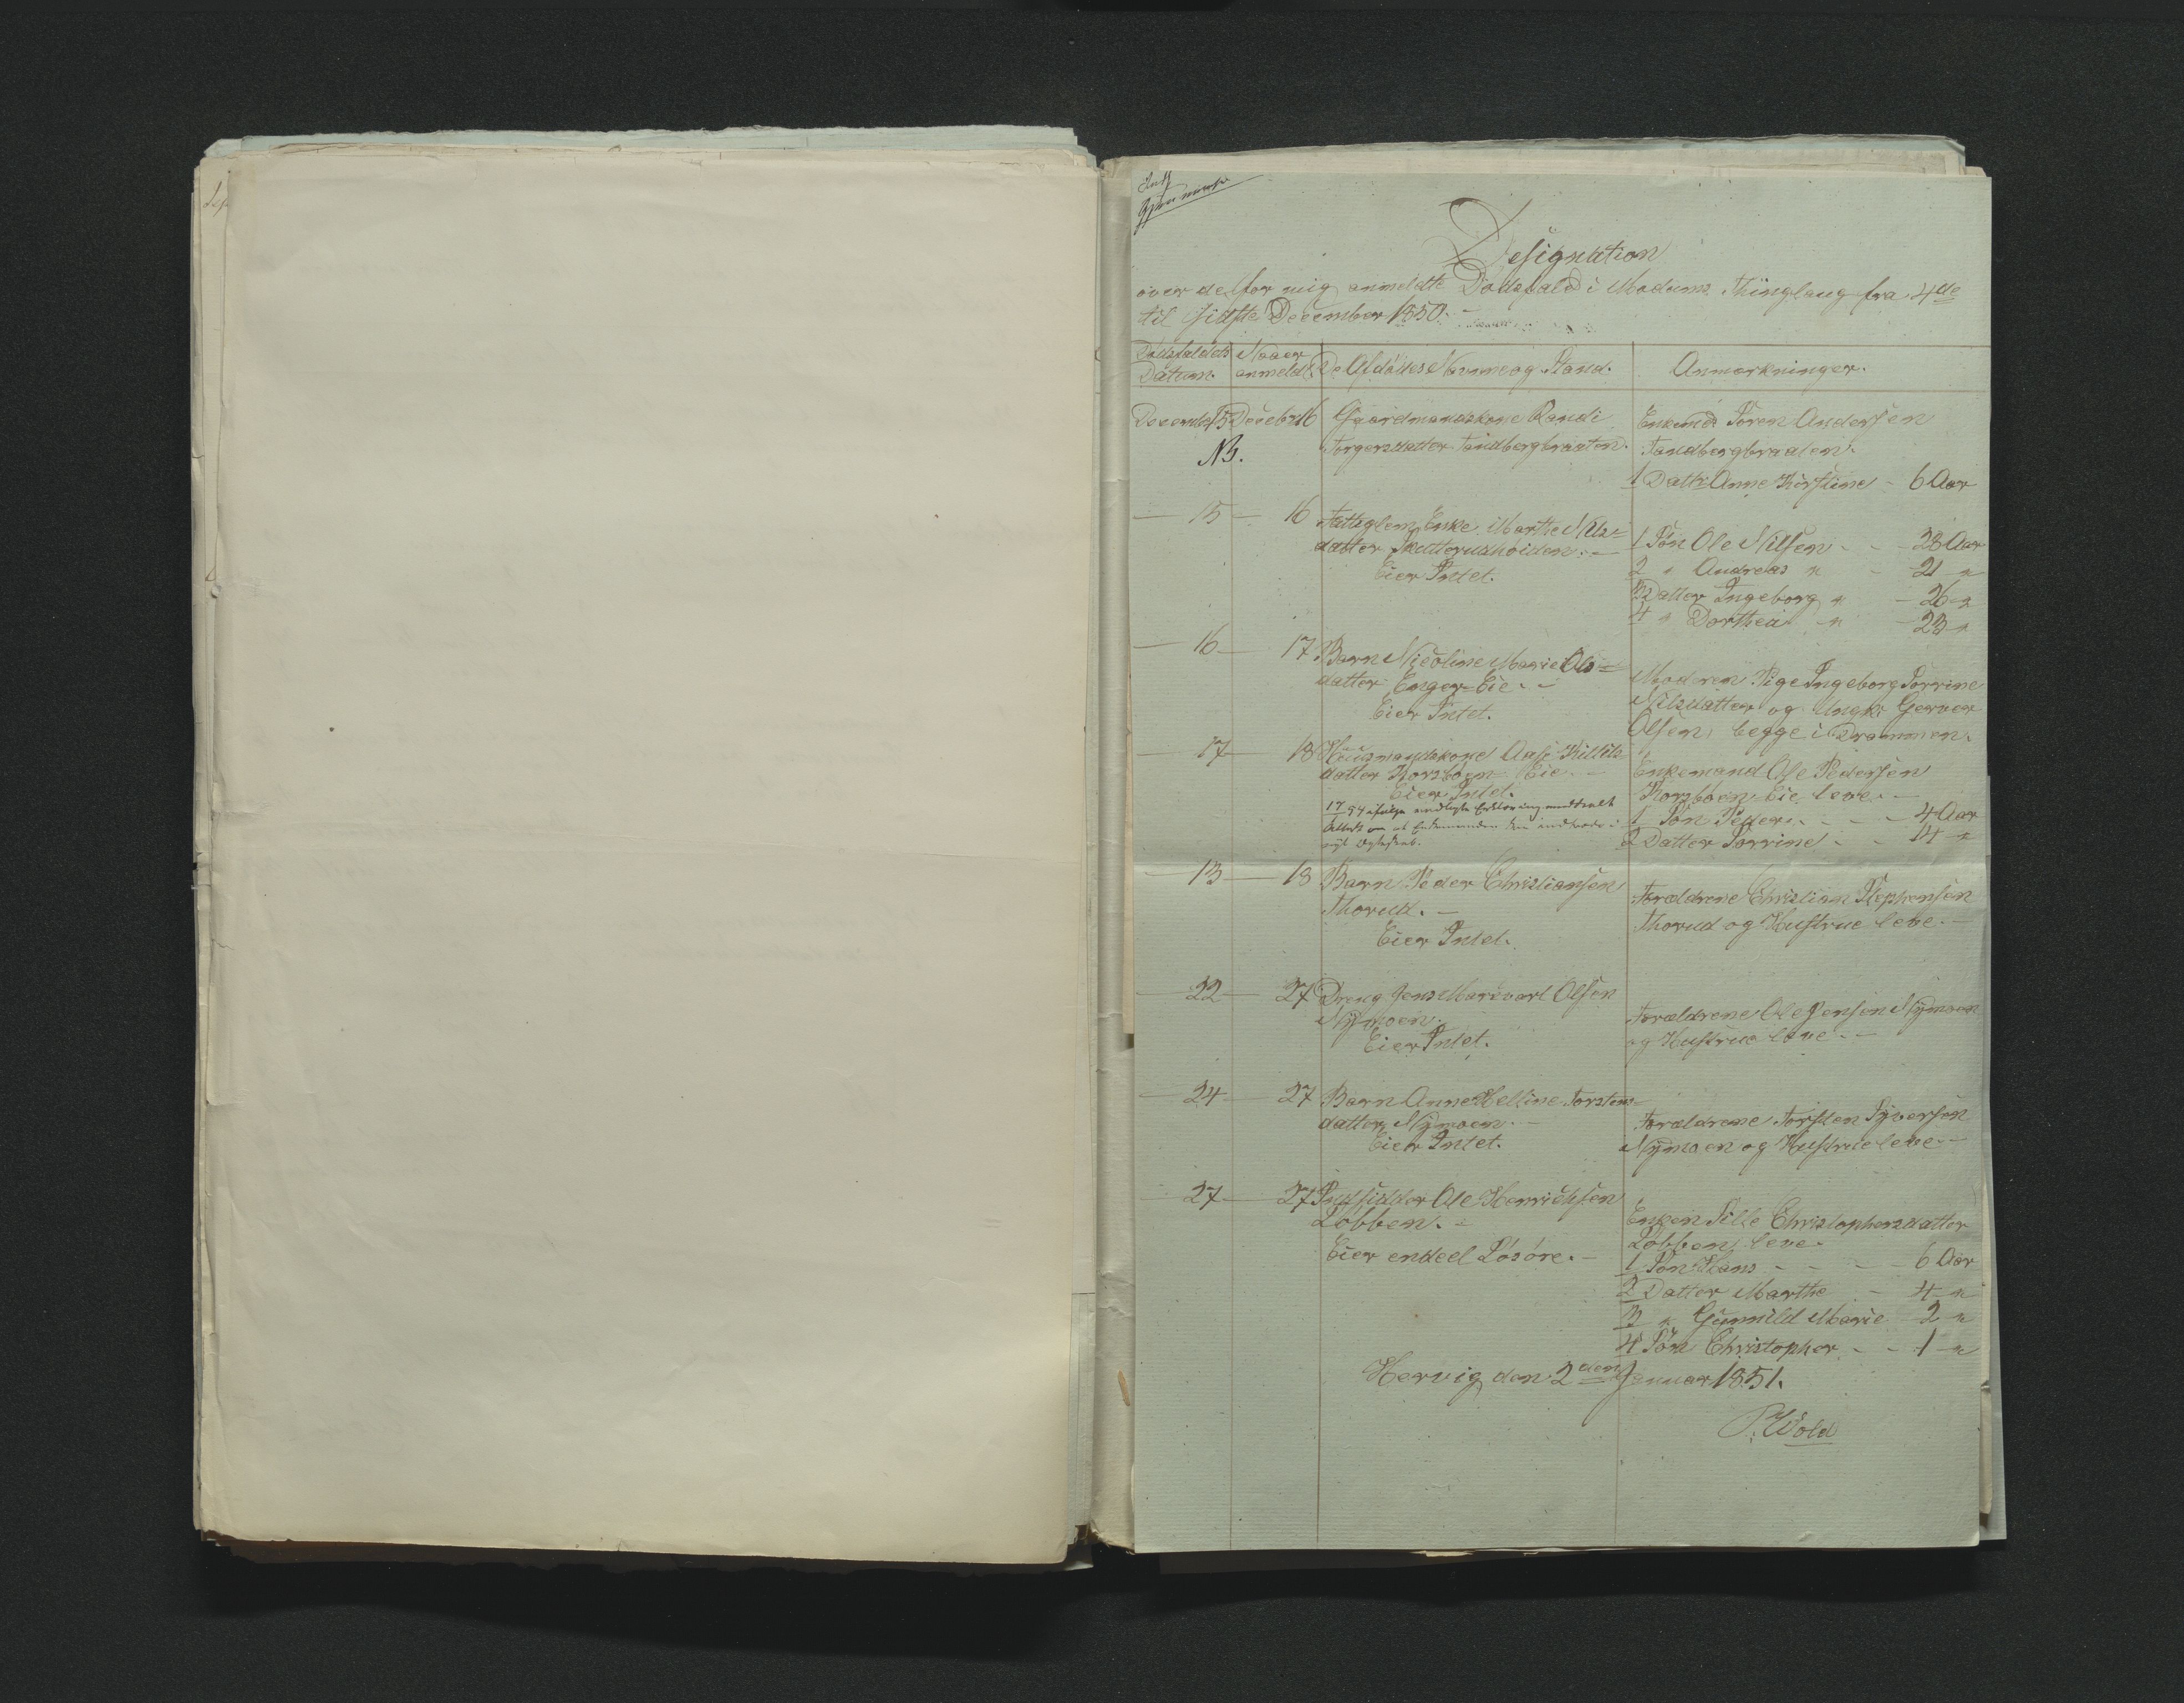 Designation
over de for mig anmeldte Dödsfald i Modums Thinglaug fra 4de
til sidste December 1850.
Dödsfaldets Datum.
Naaer anmeldt
De Afdödes Navne og Stand.
Anmærkninger.
December 15 Decebr 16 Gaardmandskone Randi
Torgersdatter Tandbergbraaten.
NB.
Enkemd Sören Andersen
Tandbergbraaten.
1 Dattr Anne Kirstine - 6 Aar
15 - 16 Fattiglem Enke Marthe Nils=
datter Skutterudhöiden. -
Eier Intet.
1 Sön Ole Nilsen - - 28 Aar
2 " Andreas " - 21 "
3 Datter Ingeborg " - 26 "
4 " Dorthea " - 23 "
16 - 17 Barn Nicoline Marie Ols=
datter Enger=Eie. -
Eier Intet.
Moderen Pige Ingeborg Sorrine
Nilsdatter og Ungkr Gerver
Olsen, begge i Drammen.
17 - 18 Huusmandskone Aase Killils
datter Korsboen=Eie. -
Eier Intet.
17/ 54 ifølge Erklæring meddeelt
Attest om at Enkemanden kan indtræde i
nyt Ægteskab.
Enkemand Ole Pedersen
Korsboen=Eie leve. -
1 Sön Peder. - - - 4 Aar
2 Datter Sorrine - - 14 "
13 - 18 Barn Peder Christiansen
Thorud. -
Eier Intet.
Forældrene Christian Stephensen
Thorud og Hustrue leve. -
22 - 27 Dreng Jens Marivart Olsen
Nymoen.
Eier Intet.
Forældrene Ole Jensen Nymoen
og Hustrue leve. -
24 - 27 Barn Anne Helline Torstens=
datter Nymoen. -
Eier Intet.
Forældrene Torsten Syversen
Nymoen og Hustrue leve. -
27 - 27 Indsidder Ole Henrichsen
Löbben. -
Eier endeel Lösöre. -
Enken Sille Christophersdatter
Löbben leve.
1 Sön Hans - - - 6 Aar
2 Datter Marthe - 4 "
3 " Gunnild Marie 2 "
4 Sön Christopher - - 1 "
Hervig den 2den Januar 1851.
P. Wold